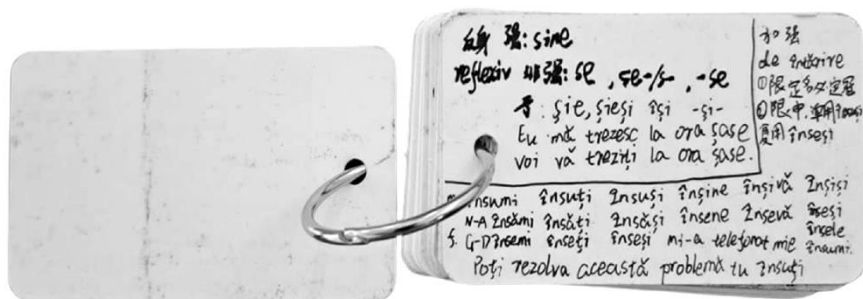 反身 强: sine
reflexiv 非强: se, se-/s-, -se
与: şie, şieşi îşi -şi-
Eu mă trezesc la ora şase
voi vă treziţi la ora şase.
加强
de întărire
①限定名从定冠
②限中, 单用însuşi
复用 înseşi
m. însumi însuţi însuşi înşine înşivă înşişi
N-A însămi însăţi însăşi însene însevă înseşi
însele
f. G-D însemi înseţi înseşi mi-a telefonat mie însumi.
Poţi rezolva această problemă tu însuţi